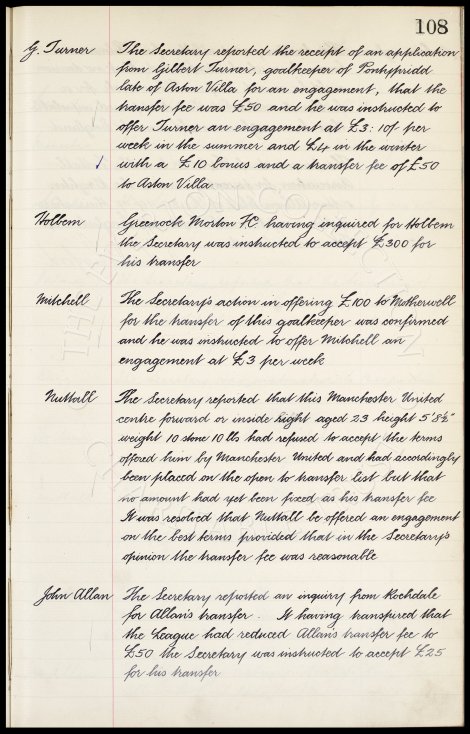 108
G. Turner The Secretary reported the receipt of an application
from Gilbert Turner, goalkeeper of Pontypridd
late of Aston Villa for an engagement, that the
transfer fee was £50 and he was instructed to
offer Turner an engagement at £3:10/ per
week in the summer and £4 in the winter
with a £10 bonus and a transfer fee of £50
to Aston Villa
Holbem Greenock Morton FC having inquired for Holbem
the Secretary was instructed to accept £300 for
his transfer
Mitchell The Secretary's action in offering £100 to Motherwell
for the transfer of this goalkeeper was confirmed
and he was instructed to offer Mitchell an
engagement at £3 per week
Nuttall The Secretary reported that this Manchester United
centre forward or inside right aged 23 height 5'8½"
weight 10 stone 10 lbs had refused to accept the terms
offered him by Manchester United and had accordingly
been placed on the open to transfer list but that
no amount had yet been fixed as his transfer fee
It was resolved that Nuttall be offered an engagement
on the best terms provided that in the Secretary's
opinion the transfer fee was reasonable
John Allan The Secretary reported an inquiry from Rochdale
for Allan's transfer. It having transpired that
the League had reduced Allan's transfer fee to
£50 the Secretary was instructed to accept £25
for his transfer